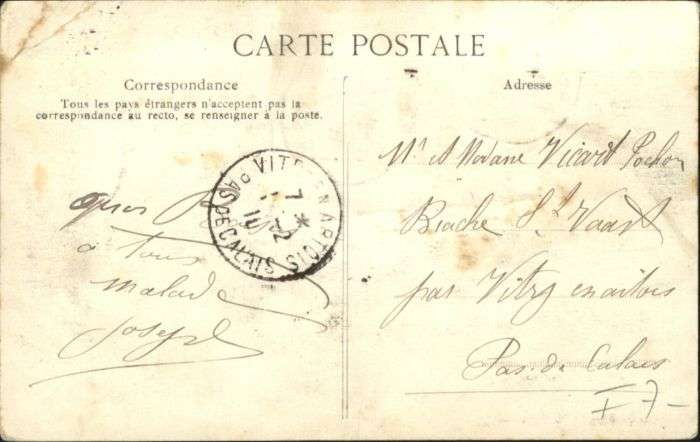 CARTE POSTALE
Correspondance
Tous les pays étrangers n'acceptent pas la
correspondance au recto, se renseigner à la poste.
à Tous
malade
Joseph
VITRY-EN-ARTOIS
PAS DE CALAIS
7
Adresse
Mr et Madame Vicart Pochon
Biache St Vaast
par Vitry en artois
Pas de Calais